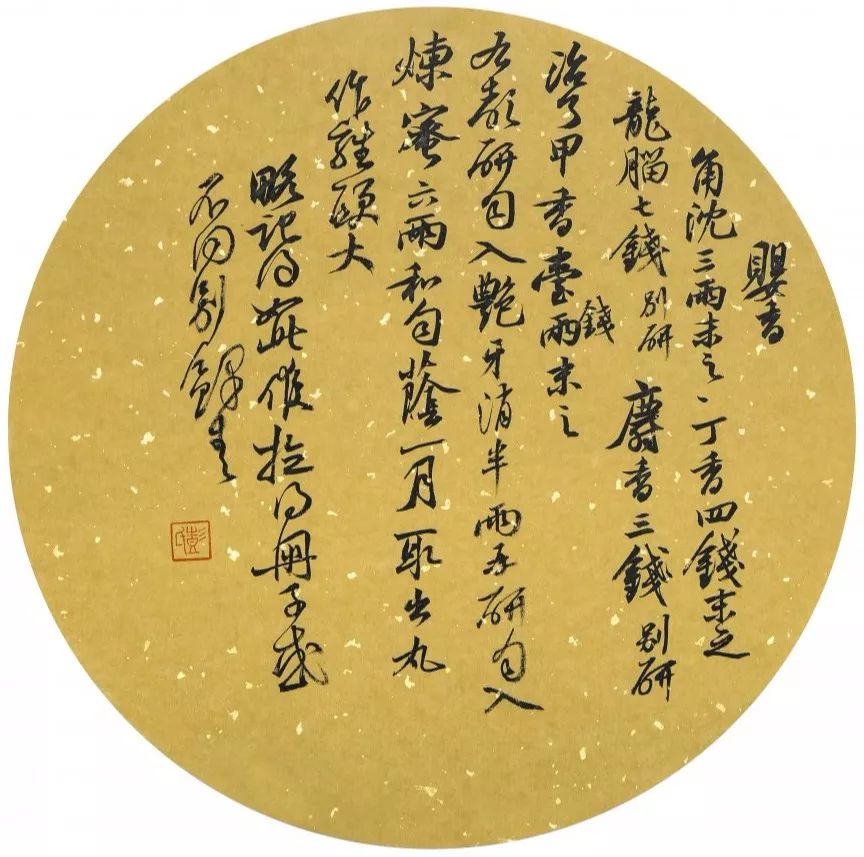 嬰香
角沈三兩末之丁香四錢末之
龍腦七錢別研麝香三錢別研
治了甲香壹兩末之
錢
右都研匀入艷牙消半兩再研匀入
煉蜜六兩和匀蔭一月取出丸
作雞頭大
略記得此候檢得冊子或
不同別錄去